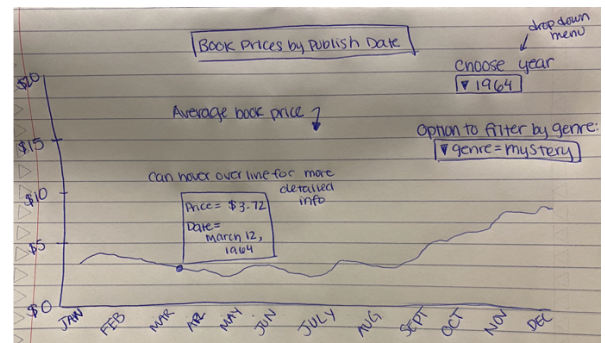 drop down
menu
Book Prices by Publish Date
choose year
▼ 1964
Average book price
Option to filter by genre:
▼ genre = mystery
can hover over line for more
detailed
info
Price = $3.72
Date =
March 12,
1964
$20
$15
$10
$5
$0
JAN FEB MAR APR MAY JUN JULY AUG SEPT OCT NOV DEC